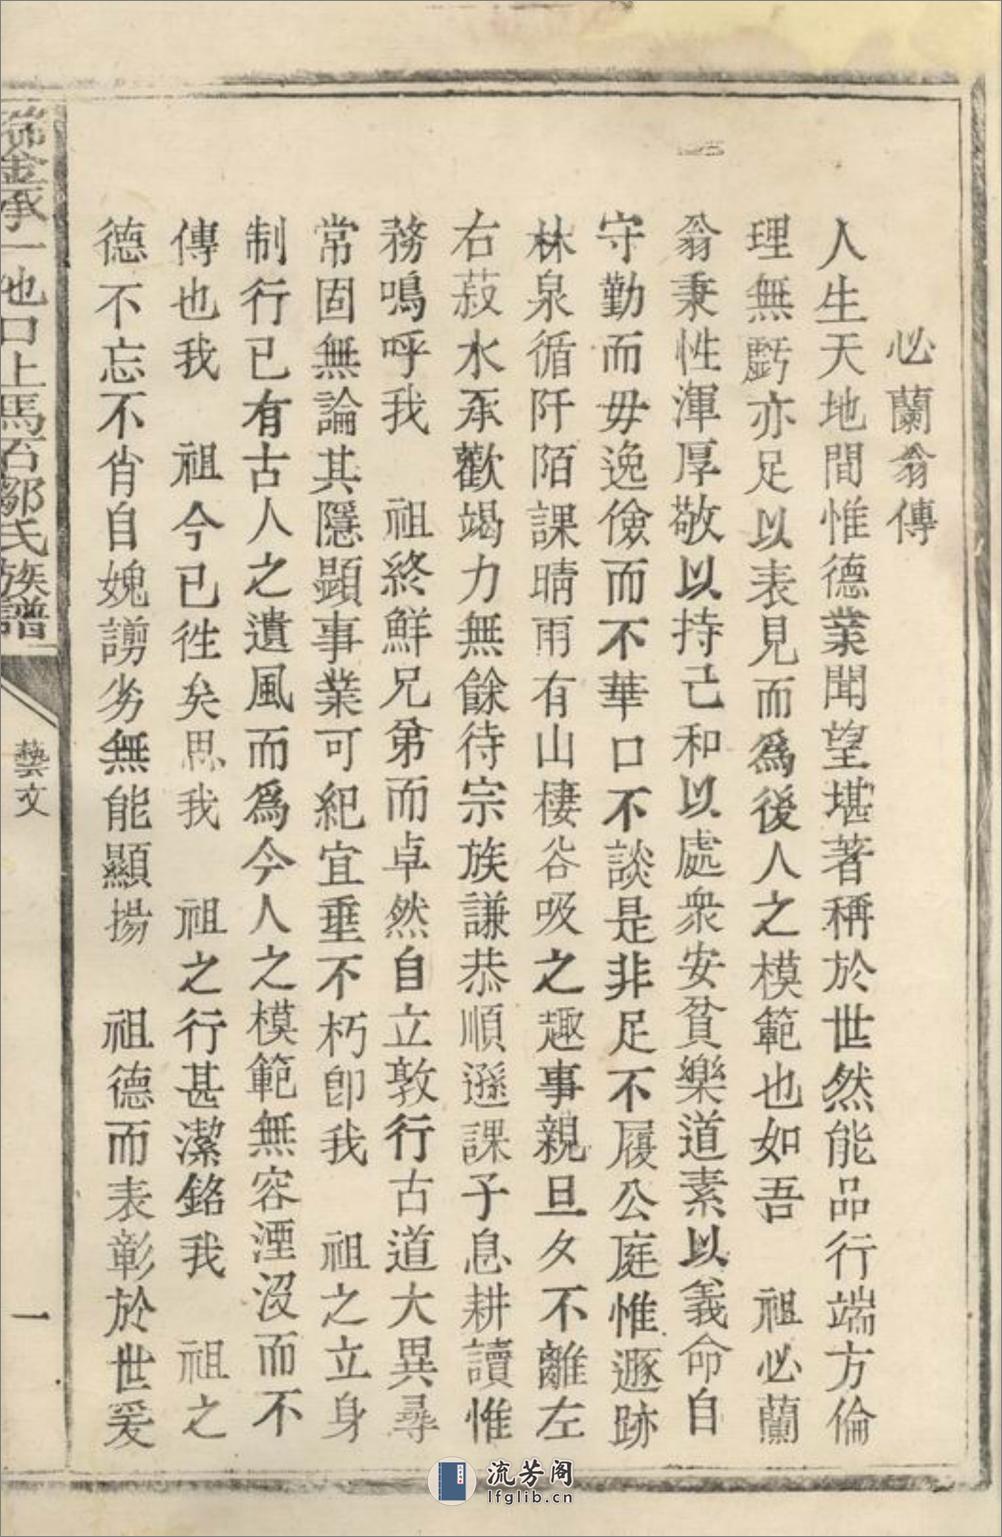 必蘭翁傳
人生天地間惟德業聞望堪著稱於世然能品行端方倫
理無虧亦足以表見而爲後人之模範也如吾　祖必蘭
翁秉性渾厚敬以持己和以處衆安貧樂道素以義命自
守勤而毋逸儉而不華口不談是非足不履公庭惟遯跡
林泉循阡陌課晴雨有山棲谷吸之趣事親旦夕不離左
右菽水承歡竭力無餘待宗族謙恭順遜課子息耕讀惟
務鳴呼我　祖終鮮兄弟而卓然自立敦行古道大異尋
常固無論其隱顯事業可紀宜垂不朽卽我　祖之立身
制行已有古人之遺風而爲今人之模範無容湮沒而不
傳也我　祖今已徃矣思我　祖之行甚潔銘我　祖之
德不忘不肖自媿謭劣無能顯揚　祖德而表彰於世爰
瑞金承一地口上馬石鄒氏族譜
藝文
一
流芳阁
lfglib.cn